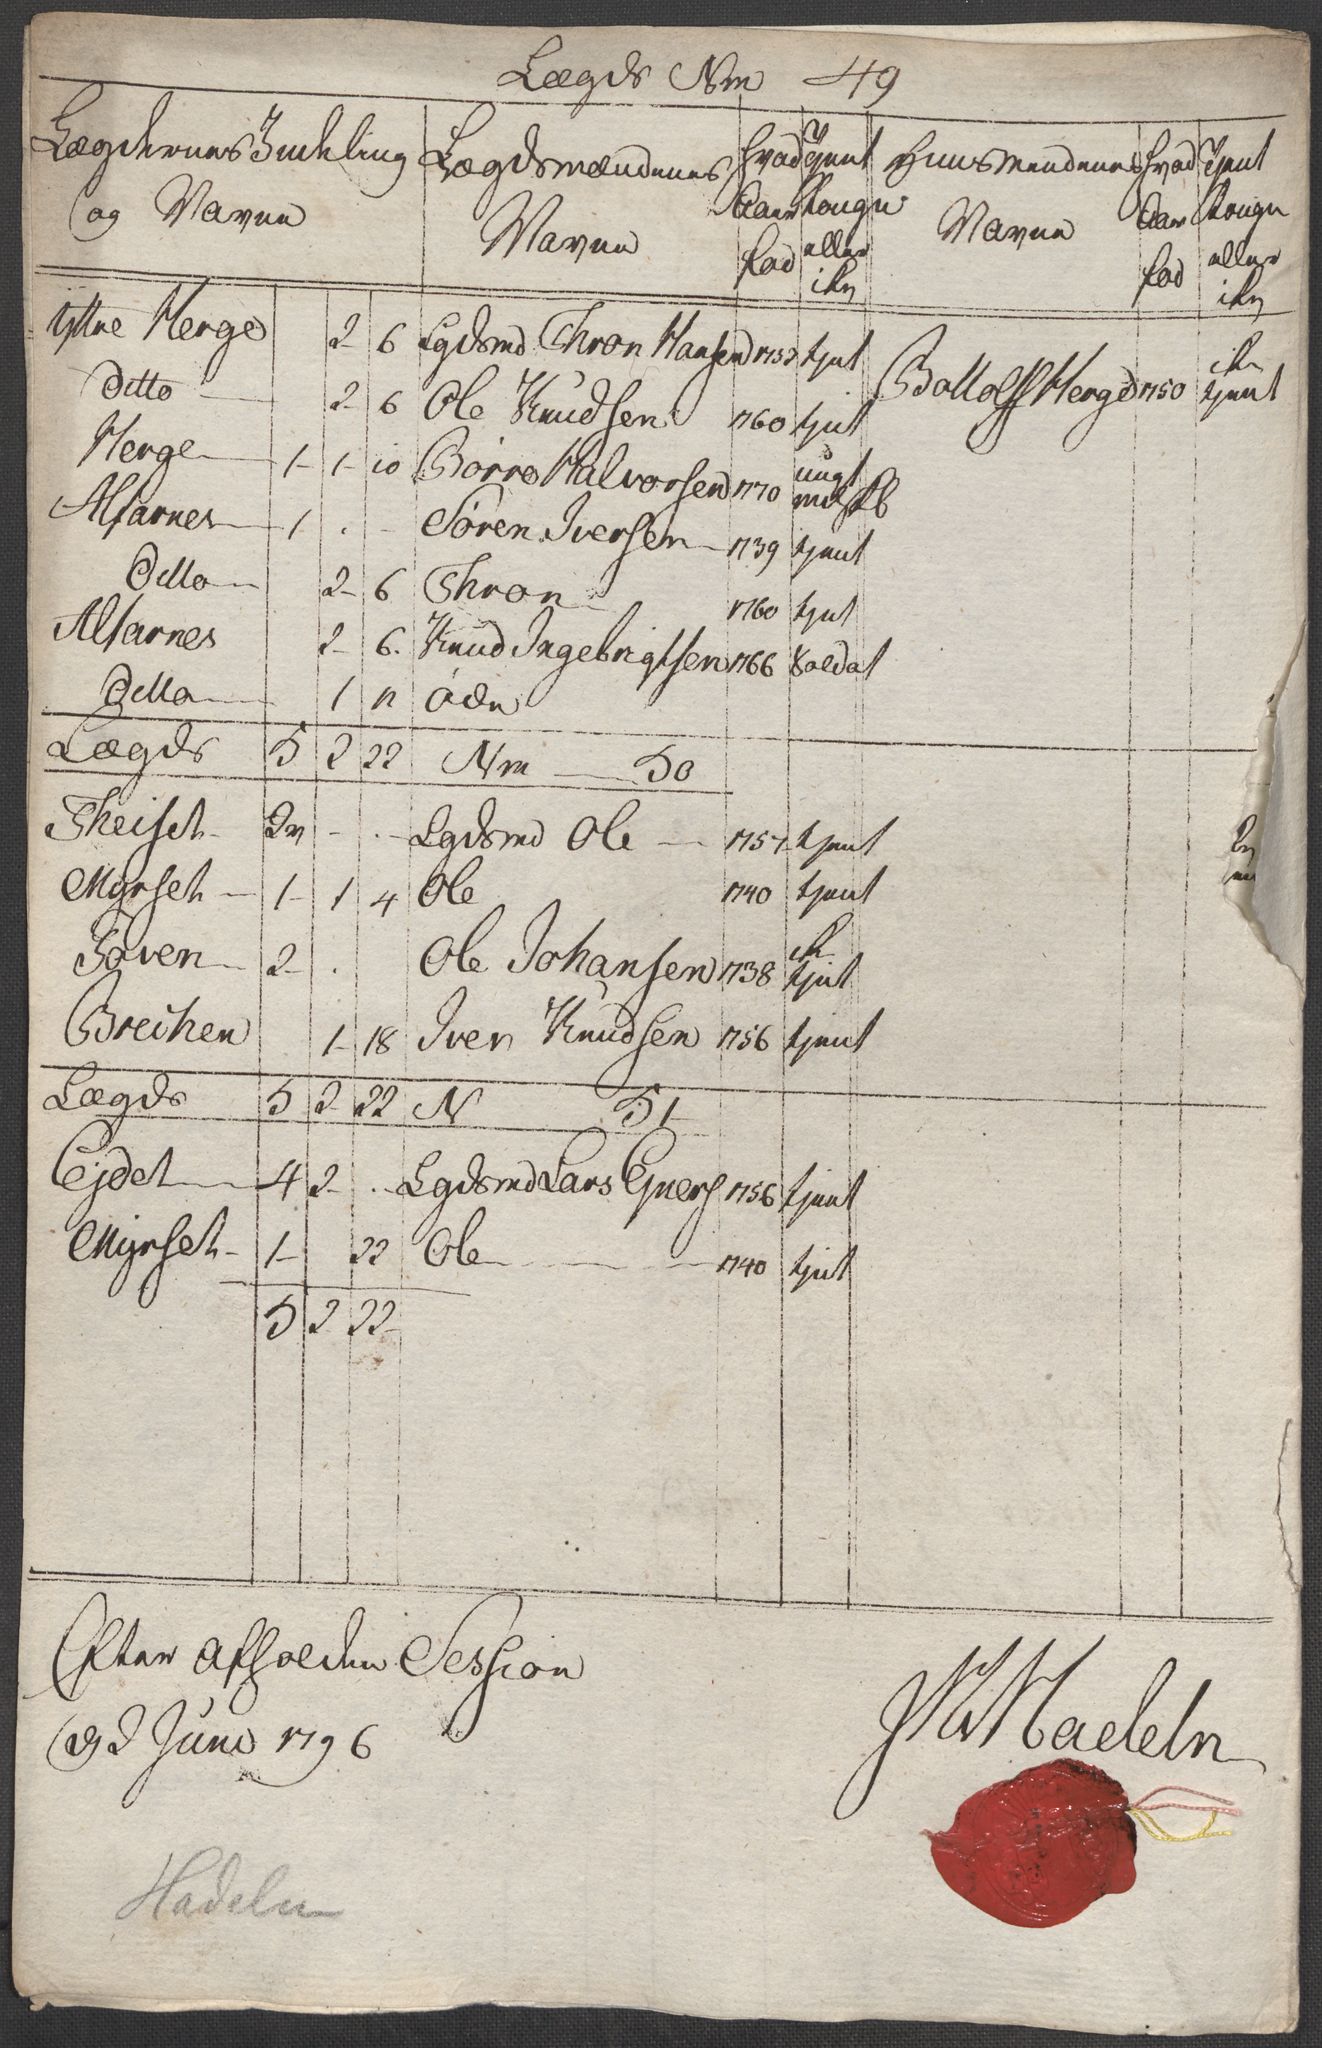 Lægds Nm 49
Lægdernes Indeling og Navne | Lægdsmændenes Navne | hvad Aar fød | Tjent Kongen eller ikke | Huusmendenes Navne | hvad Aar fød | Tjent Kongen eller ikke
Yttre Herge 2 6 Lgdsmd Thron Hansen tjent
Bottolff Herge 1750 ik tjent
Ditto 2 6 Ole Knudsen 1760 tjent
Herge 1 1 10 Børre Halvorsen 1770 ungt
Alfarnes 1 . - Søren Iversen 1739 tjent
Ditto 2 6 Thron 1760 tjent
Alfarnes 2 6. Knud Ingebrigtsen 1766 Soldat
Ditto 1 11 øde
Lægds 5 2 22 Nm 50
Theiset - . Lgdsmd Ole 1757 tjent
Myrseth 1 1 4 Ole 1740 tjent
Toven 2 . Ole Johansen 1738 ik tjent
Breiken 1 18 Iver Knudsen 1756 tjent
Lægds 5 2 22 N 51
Ejdet 4 2 . Lgdsmd Lars 1756 tjent
Myrseth 1 22 Ole 1740 tjent
5 2 22
Efter afholden Session
d 2 Juni 1796
Hadeln
Hadeln